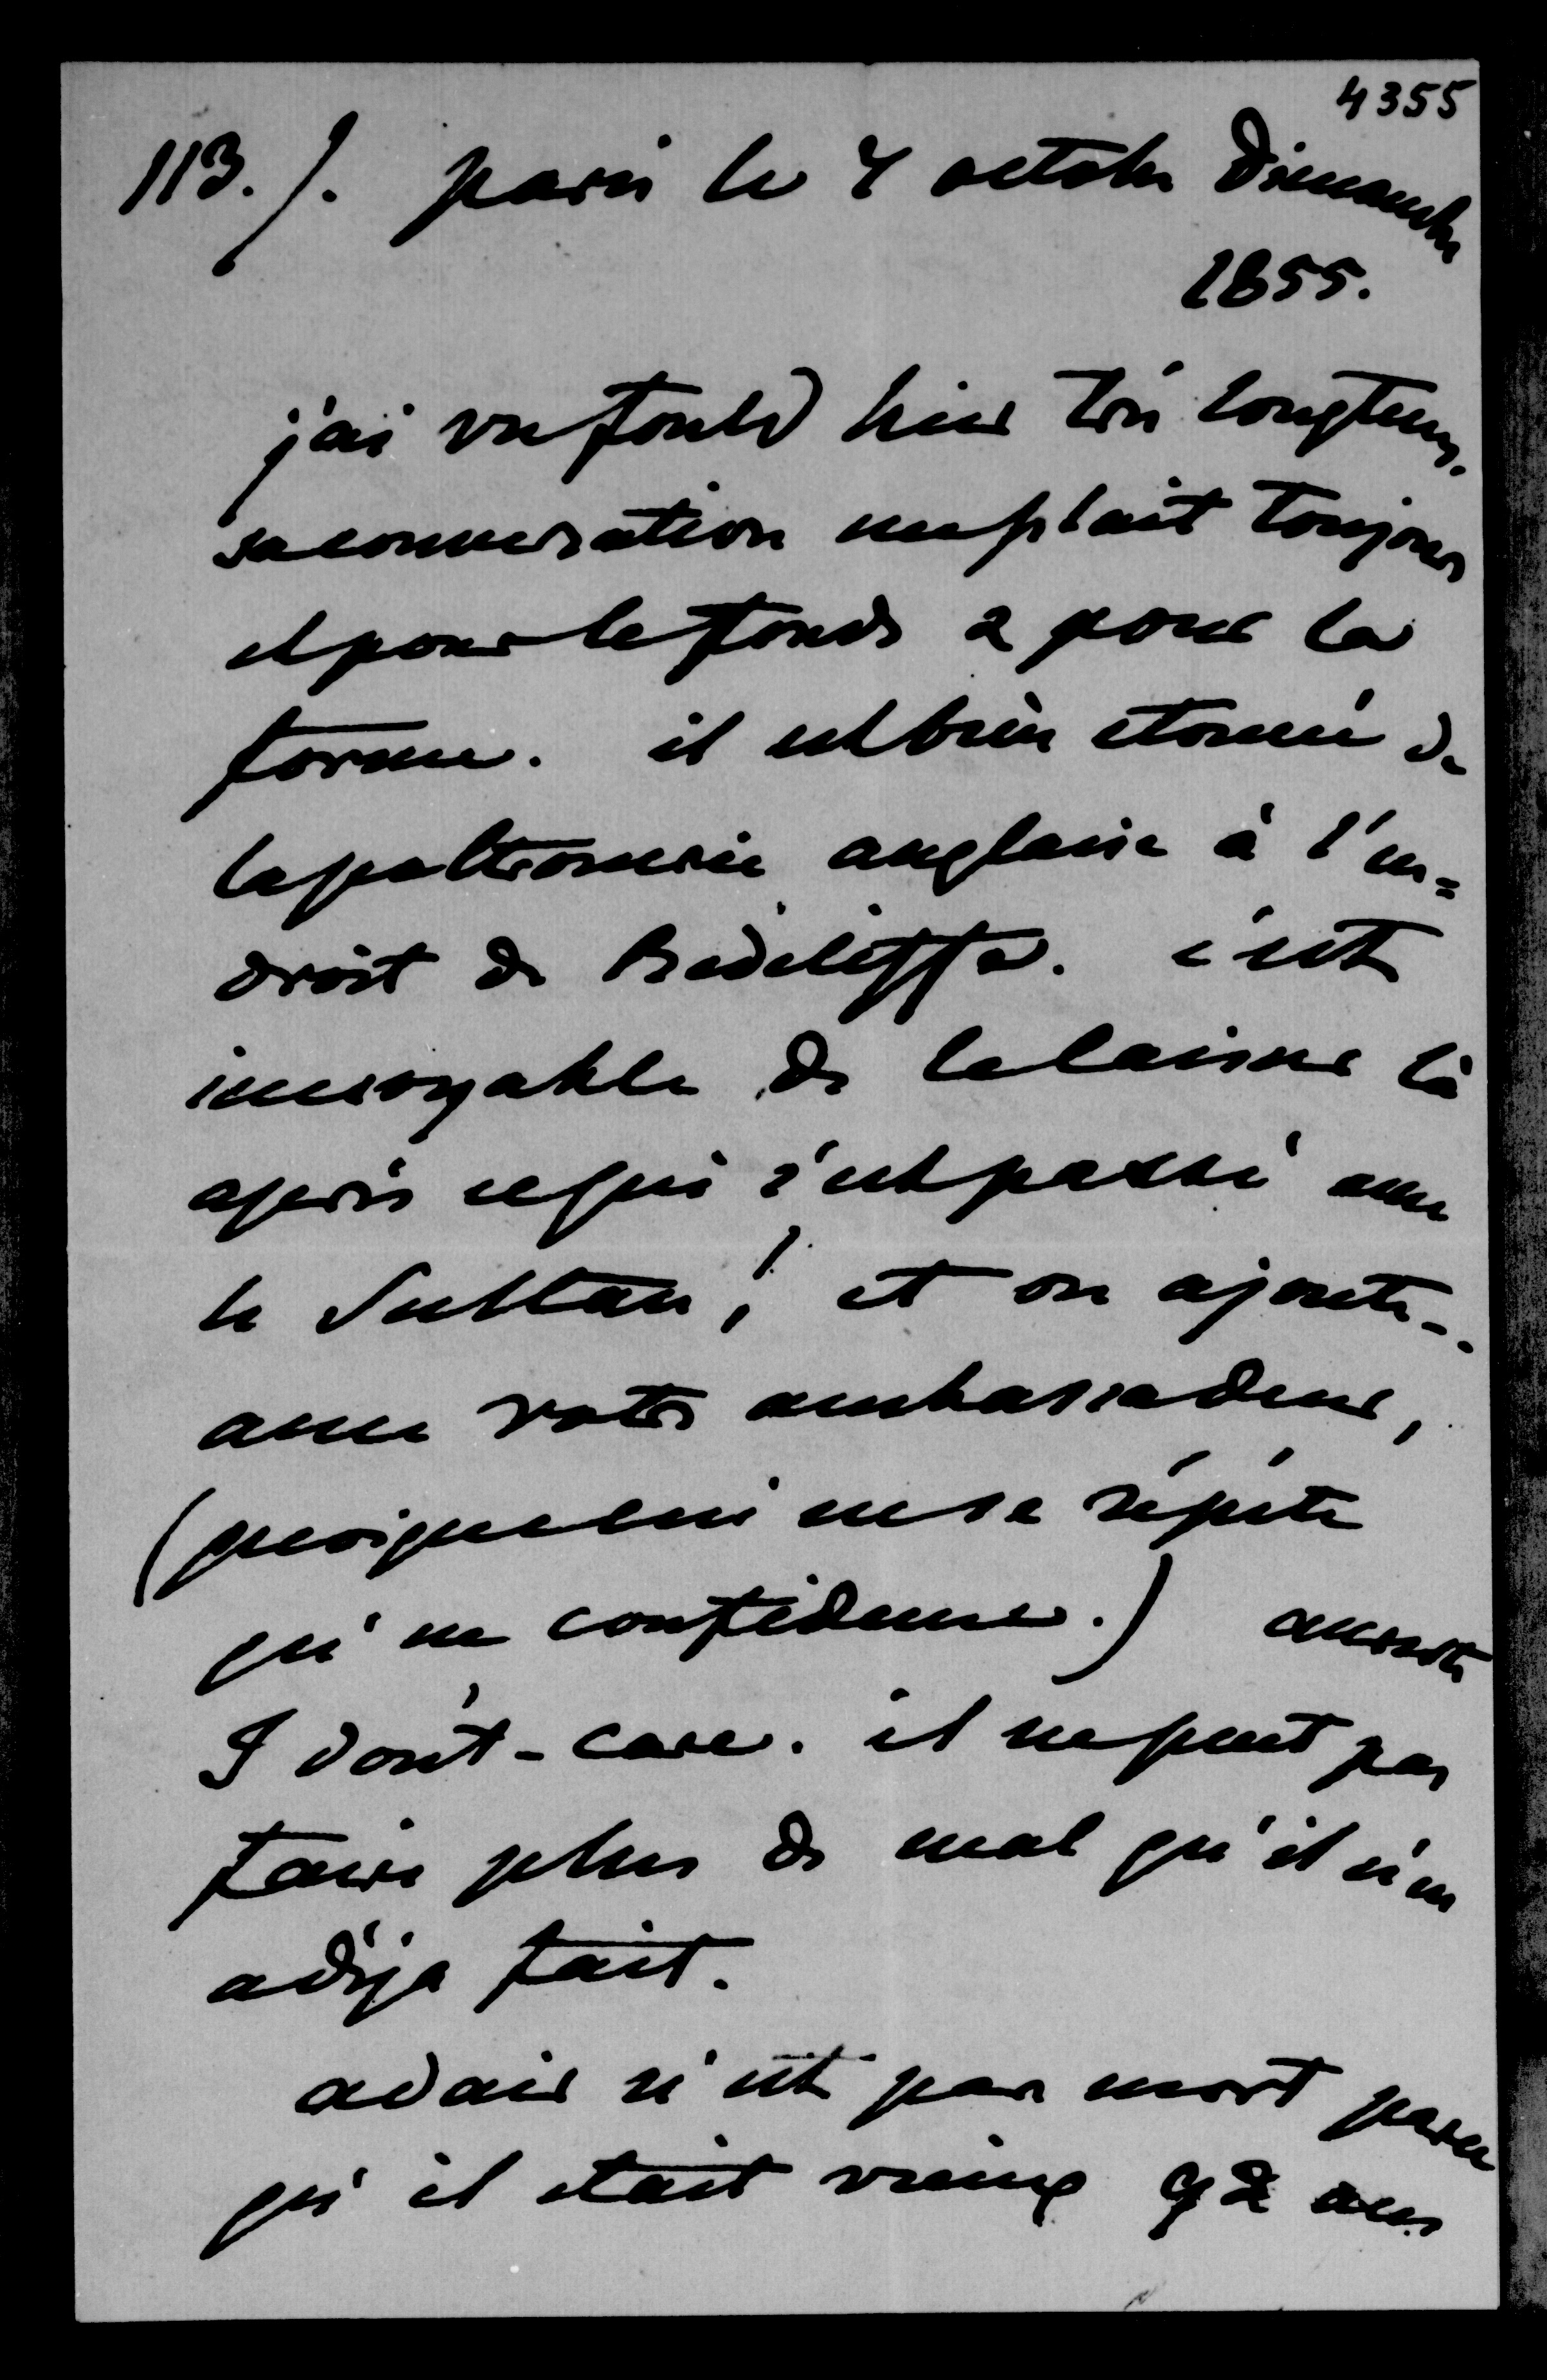 4355
113. /. paris le 7 octobre Dimanche
1855.
j'ai vu fould hier très longtems.
sa conversation me plait toujours
et pour le fonds & pour la
forme. il est bien etonné de
la poltronnerie anglaise à l'en=
droit de Redcliffe. c'est
incroyable de le laisser là
après ce qui s'est passé avec
le Sultan! et on ajoute -.
avec votre ambassadeur,
(quoique ceci ne se répète
qu'en confidence.) au reste
I don't-care. il ne peut pas
faire plus de mal qu'il n'en
a déja fait.
adair n'est pas mort parce
qu'il etait vieux 92 ans